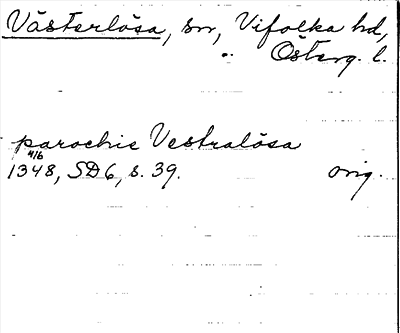 Västerlösa, sn, Vifolka hd,
Österg. l.
parochie Vestralösa
4/6
1348, SD 6, s. 39. orig.